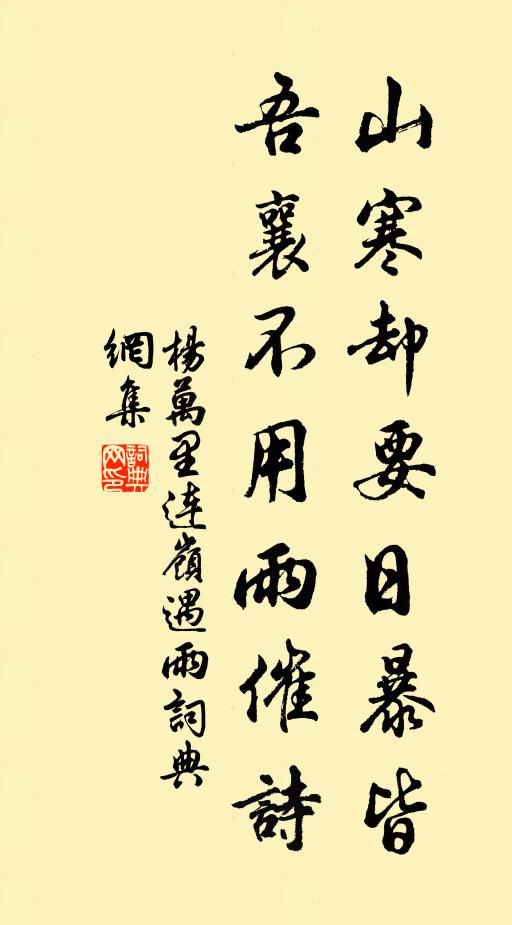 山寒却要日暴皆
吾襄不用雨催詩
楊萬里連嶺遇雨詞典
網集
詞典
网印